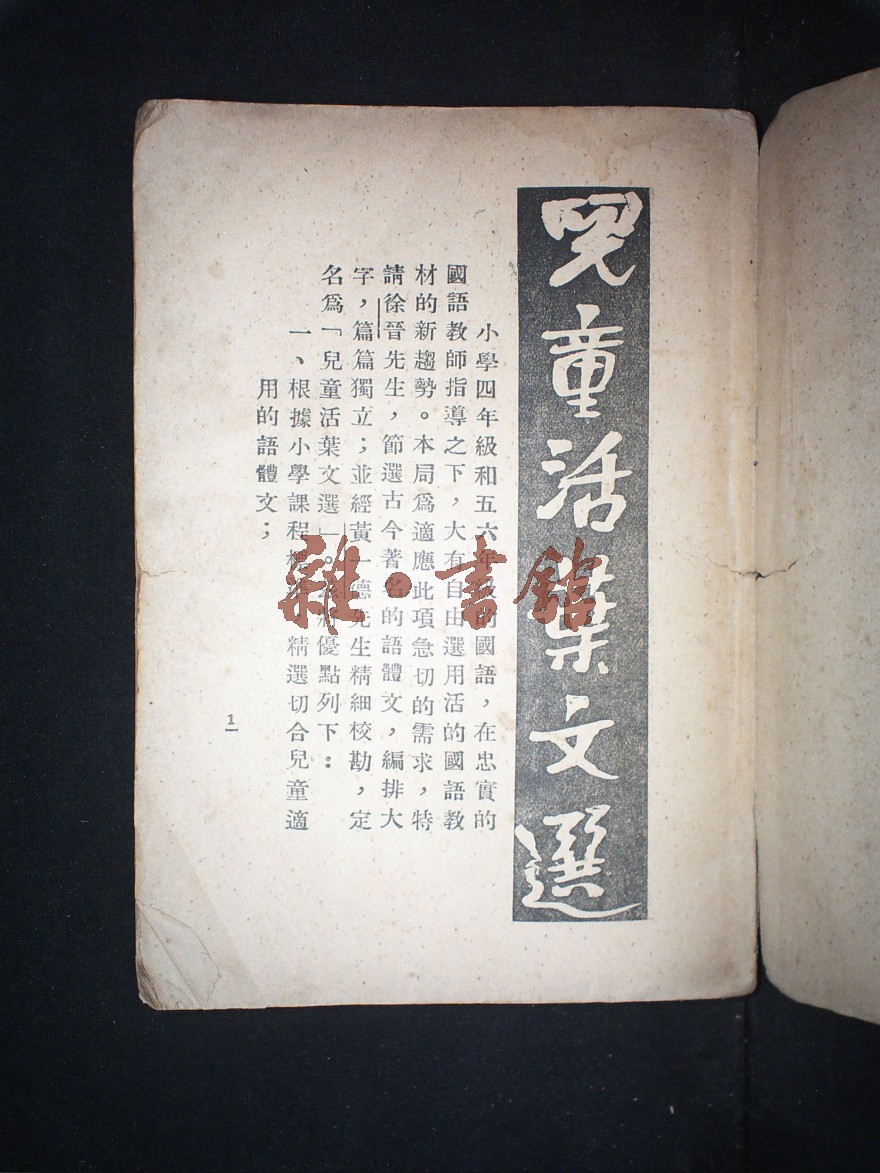 兒童活葉文選
小學四年級和五六年級的國語，在忠實的
國語教師指導之下，大有自由選用活的國語教
材的新趨勢。本局爲適應此項急切的需求，特
請徐晉先生，節選古今著名的語體文，編排大
字，篇篇獨立；並經黃一德先生精細校勘，定
名爲「兒童活葉文選」。優點列下：
一、根據小學課程標準精選切合兒童適
用的語體文；
1
雜·書館